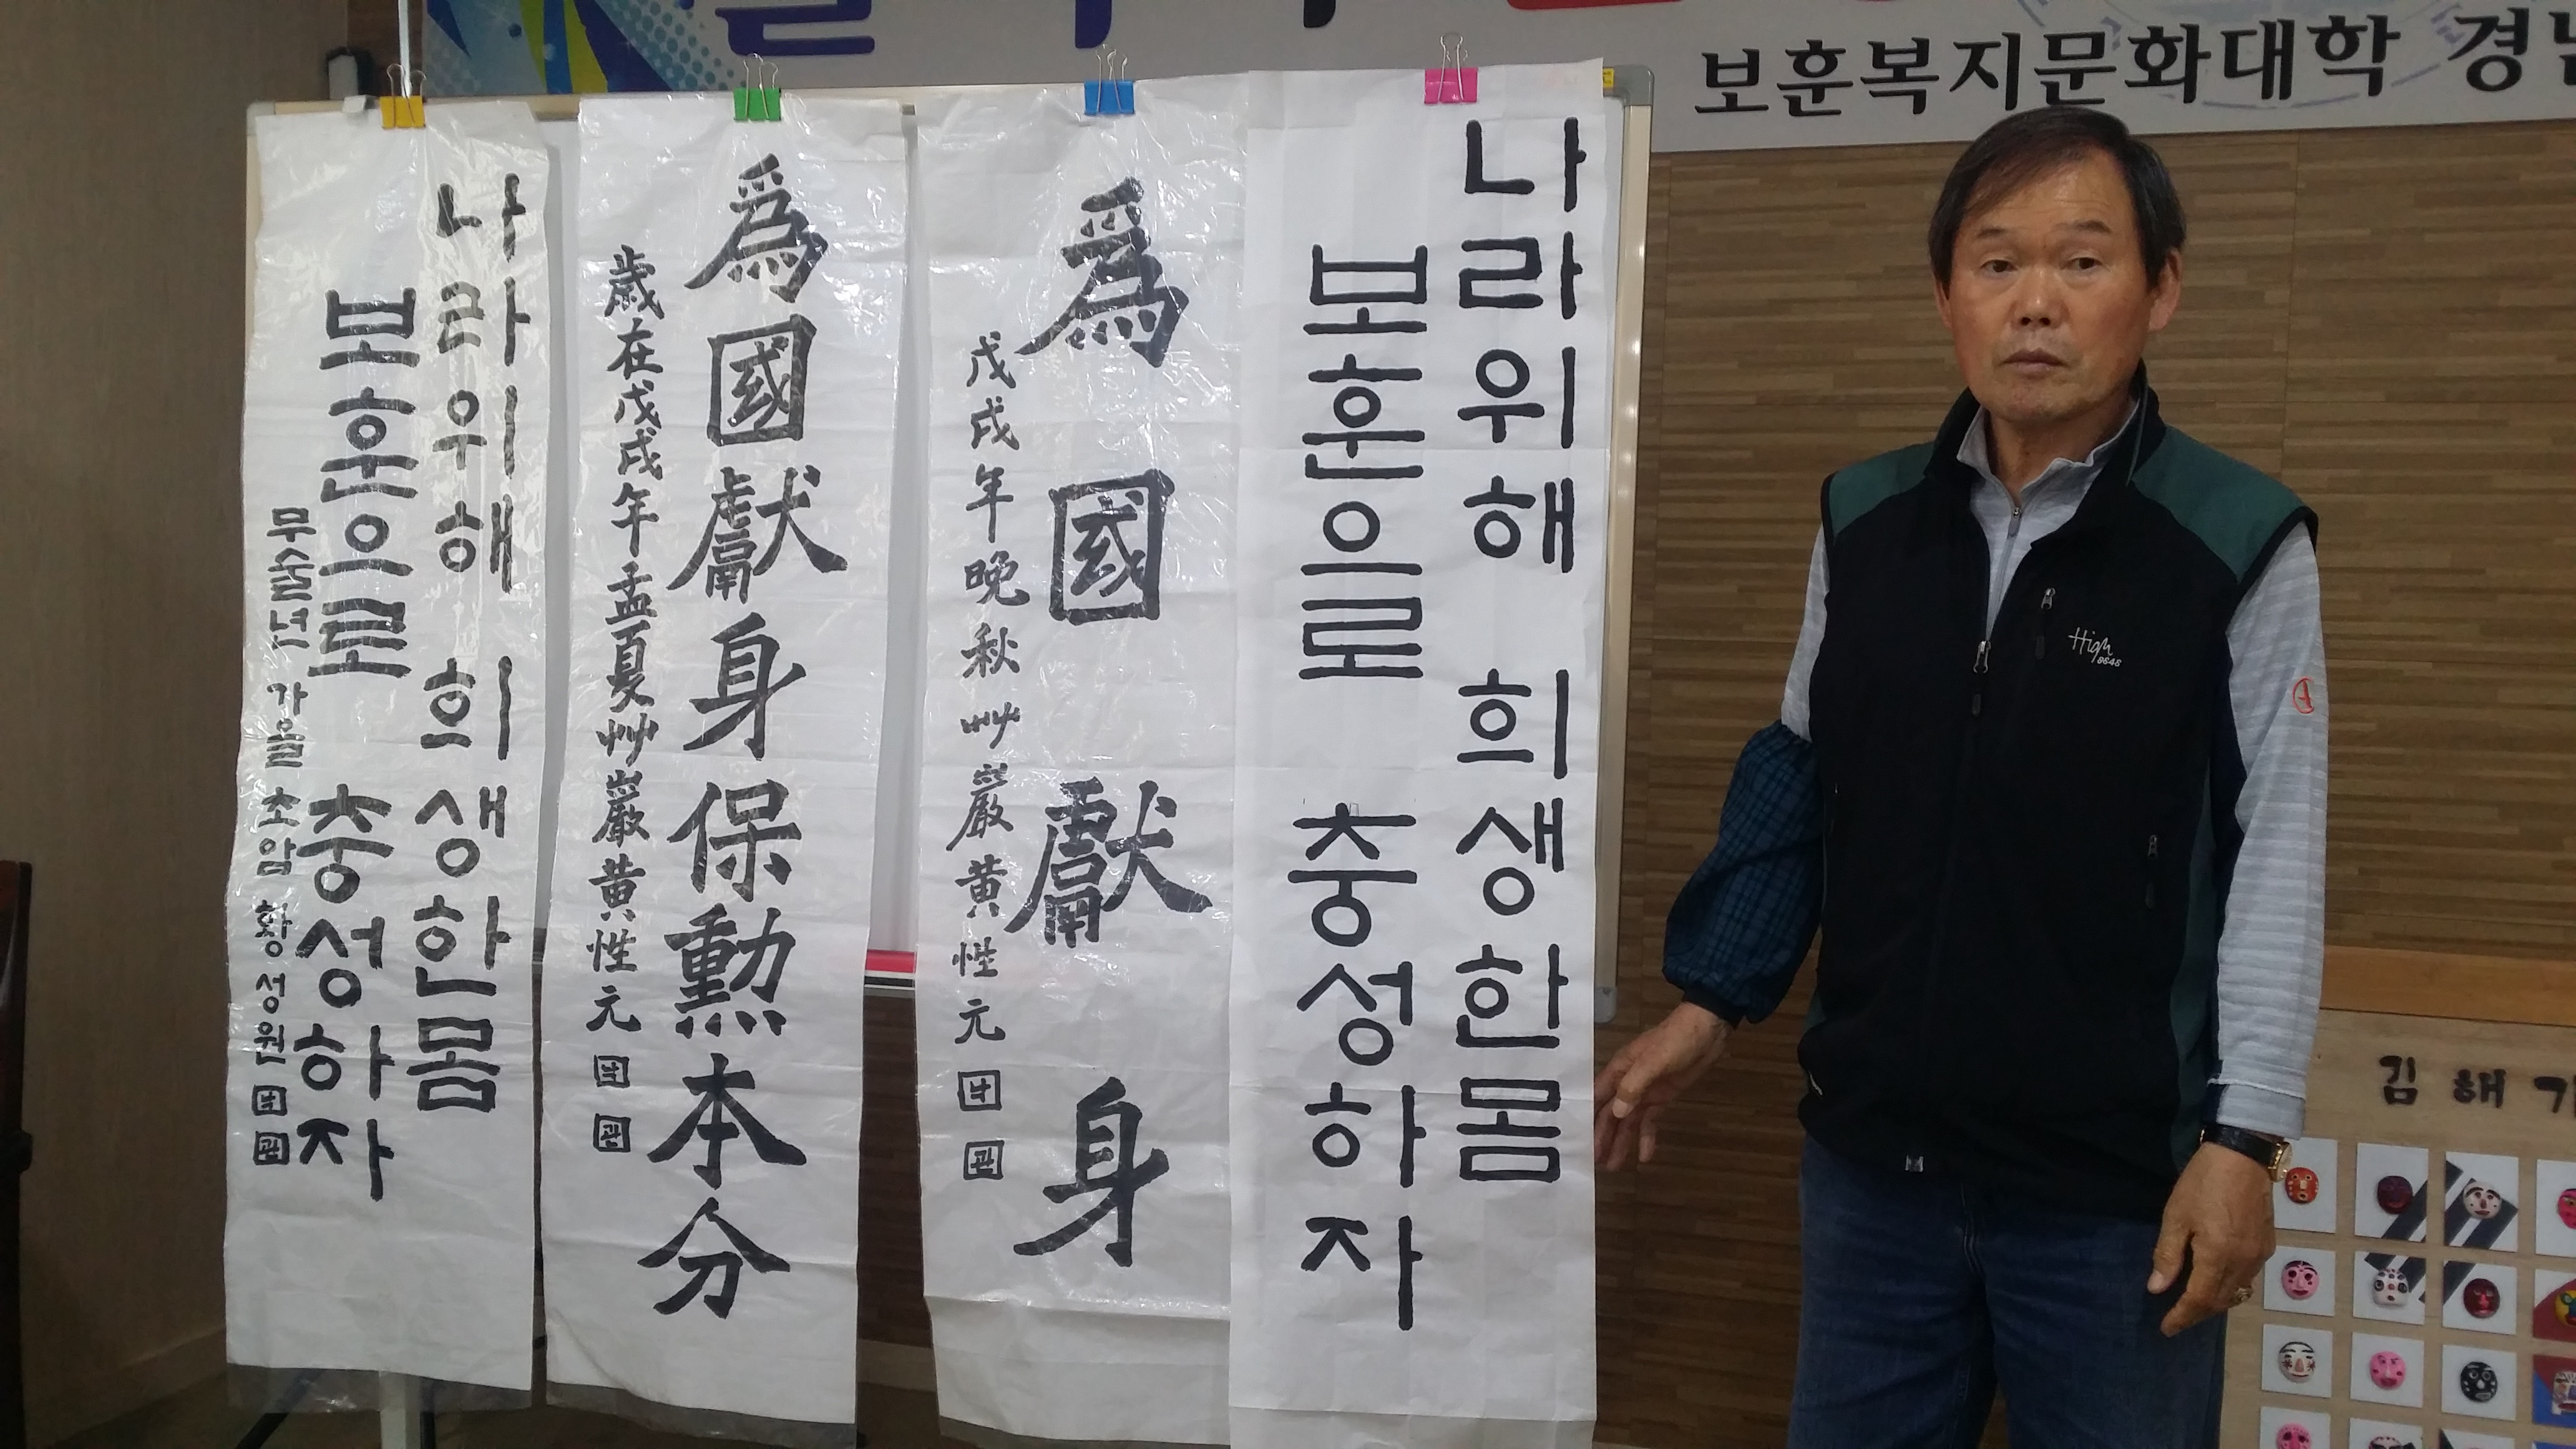 보훈복지문화대학 경남
나라위해 희생한몸
보훈으로 충성하자
爲國獻身
戊戌年晩秋 艸巖 黃性元
爲國獻身保勳本分
歲在戊戌年孟夏艸巖黃性元
나라위해 희생한몸
보훈으로 충성하자
무술년 가을 초암 황성원
High
8848
김해